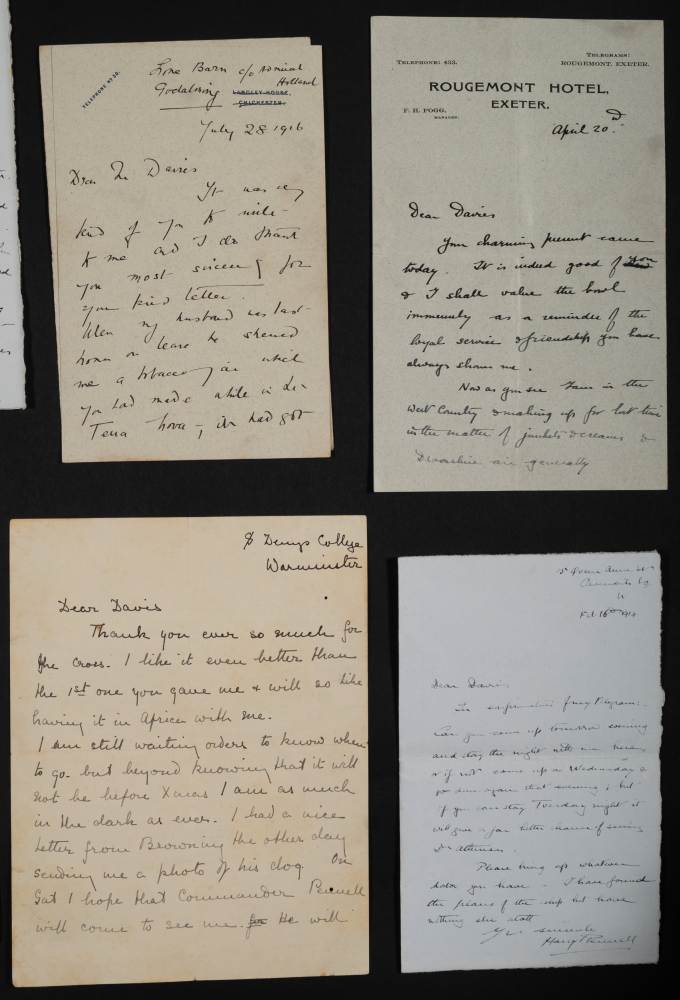 TELEPHONE NO 20.
Lone Barn c/o Admiral
Holland
Godalming
LANGLEY HOUSE,
CHICHESTER.
July 28 1916
Dear Mr Davies
It was very
kind of you to write
to me and I do thank
you most sincerely for
your kind letter.
When my husband was last
home on leave he showed
me a tobacco jar which
you had made while in the
Terra Nova; it had got
TELEPHONE: 433.
TELEGRAMS:
ROUGEMONT, EXETER.
ROUGEMONT HOTEL,
EXETER.
F. H. FOGG,
MANAGER.
April 20
Dear Davies
Your charming present came
today. It is indeed good of you
& I shall value the bowl
immensely as a reminder of the
loyal service & friendship you have
always shown me.
Now as you see I am in the
West Country & making up for lost time
in the matter of junkets & creams &
Devonshire air generally
St Denys College
Warminster
Dear Davis
Thank you ever so much for
the cross. I like it even better than
the 1st one you gave me & will so like
having it in Africa with me.
I am still waiting orders to know when
to go. but beyond knowing that it will
not be before Xmas I am as much
in the dark as ever. I had a nice
letter from Browning the other day
sending me a photo of his dog On
Sat I hope that Commander Pennell
will come to see me. for He will
Queen Anne St
Cavendish Sq
W
Feb 16th 1914
Dear Davis,
In confirmation of my telegram:
Can you come up tomorrow evening
and stay the night with me here,
or if not come up on Wednesday &
again that evening; but
if you can stay Tuesday night it
will give a far better chance of seeing
Dr Atkinson.
Please bring up whatever
you have. I have found
the plans of the ship but have
nothing else
Yrs sincerely
Harry Pennell